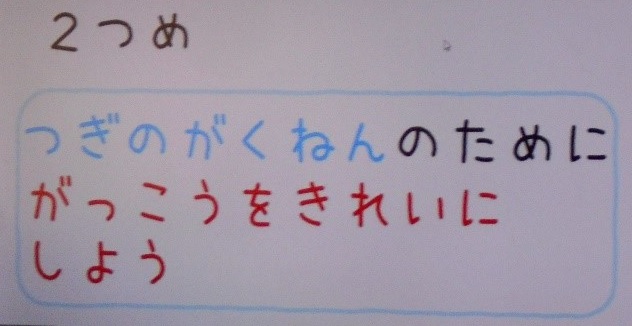 2つめ
つぎのがくねんのために
がっこうをきれいに
しよう